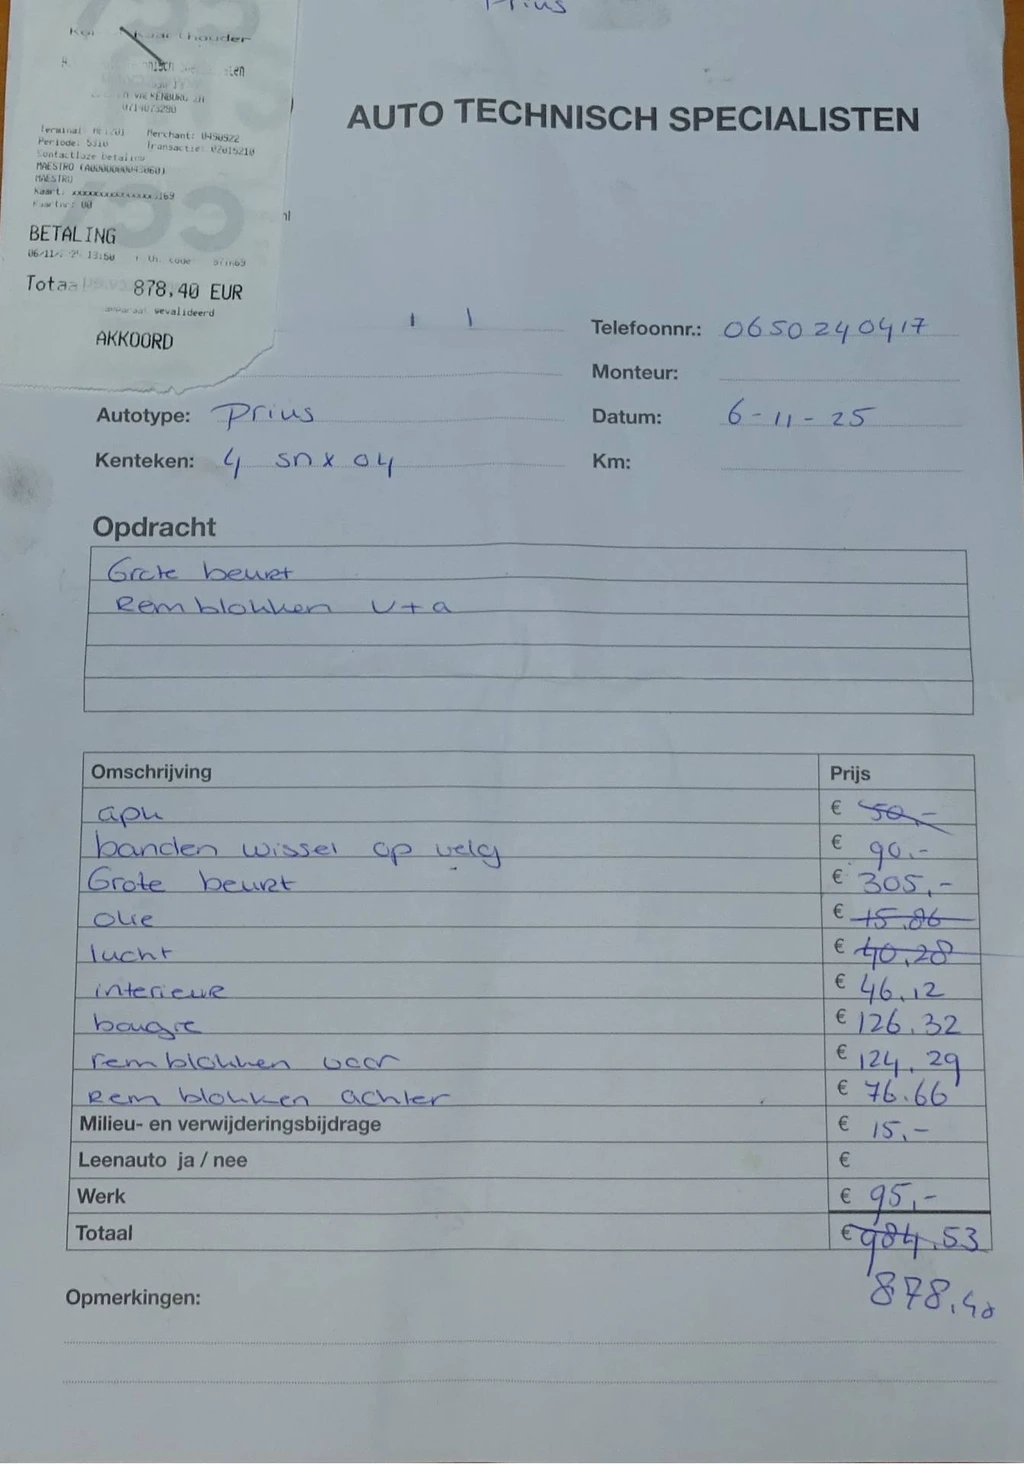 Prius
Kaarthouder
VALKENBURG ZH
0714073290
Terminal: Merchant: 0490922
Periode: 5310 Transactie: 02015210
Contactloze betaling
MAESTRO (A0000000043060)
MAESTRO
Kaart: xxxxxxxxxxxxxxx3169
BETALING
13:50
Totaal 878,40 EUR
gevalideerd
AKKOORD
AUTO TECHNISCH SPECIALISTEN
nl
Telefoonnr.: 0650240417
Monteur:
Autotype: Prius
Datum: 6-11-25
Kenteken: 4 snx 04
Km:
Opdracht
Grote beurt
Remblokken v+a
Omschrijving Prijs
apk € 50,-
banden wissel op velg € 90.-
Grote beurt € 305,-
olie € 15.86
lucht € 40,28
interieur € 46.12
bougie € 126.32
remblokken voor € 124.29
Rem blokken achter € 76.66
Milieu- en verwijderingsbijdrage € 15,-
Leenauto ja / nee €
Werk € 95,-
Totaal € 984.53
878,40
Opmerkingen: